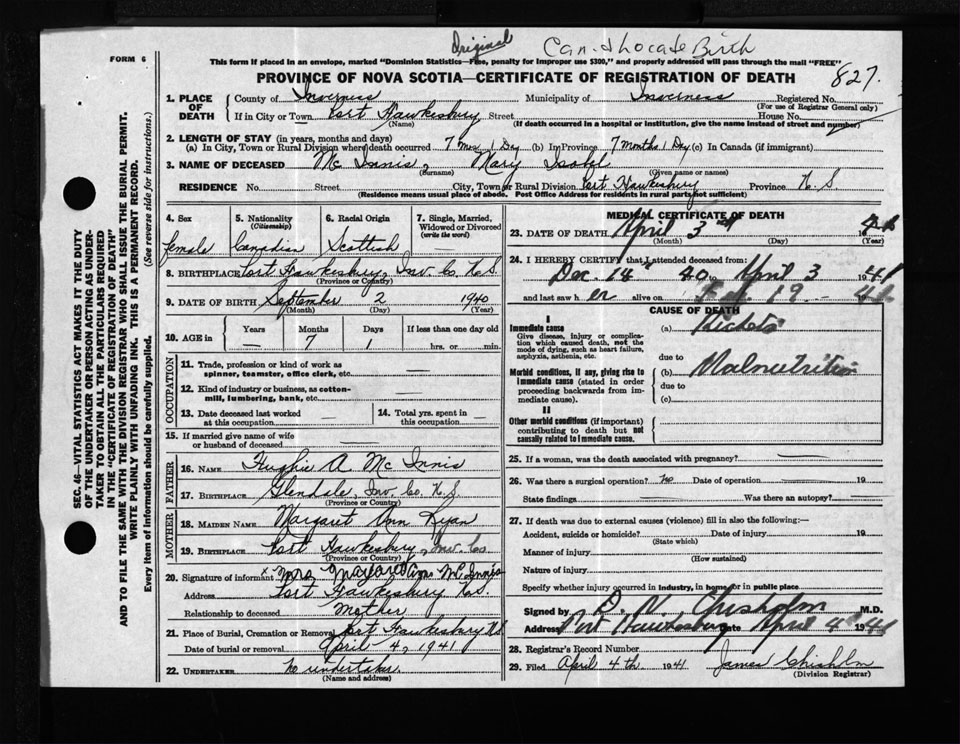 Original Can't Locate Birth
FORM 6
This form if placed in an envelope, marked "Dominion Statistics—Free, penalty for improper use $300," and properly addressed will pass through the mail "FREE"
PROVINCE OF NOVA SCOTIA—CERTIFICATE OF REGISTRATION OF DEATH 827.
1. PLACE OF DEATH County of Inverness Municipality of Inverness Registered No.
(For use of Registrar General only)
If in City or Town Port Hawkesbury Street House No.
(Name) (If death occurred in a hospital or institution, give the name instead of street and number)
2. LENGTH OF STAY (in years, months and days)
(a) In City, Town or Rural Division where death occurred 7 Mos 1 Day (b) In Province 7 months 1 Day (c) In Canada (if immigrant)
3. NAME OF DECEASED Mc Innis, Mary Isobel
(Surname) (Given name or names)
RESIDENCE No. Street City, Town or Rural Division Port Hawkesbury Province N.S
(Residence means usual place of abode. Post Office Address for residents in rural parts not sufficient)
4. Sex female
5. Nationality (Citizenship) Canadian
6. Racial Origin Scottish
7. Single, Married, Widowed or Divorced (write the word)
8. BIRTHPLACE Port Hawkesbury, Inv. Co. N.S.
(Province or Country)
9. DATE OF BIRTH September 2 1940
(Month) (Day) (Year)
10. AGE in Years Months Days If less than one day old
— 7 1 hrs. or min.
OCCUPATION
11. Trade, profession or kind of work as spinner, teamster, office clerk, etc. —
12. Kind of industry or business, as cotton-mill, lumbering, bank, etc. —
13. Date deceased last worked at this occupation —
14. Total yrs. spent in this occupation —
15. If married give name of wife or husband of deceased —
FATHER
16. NAME Hughie A. Mc Innis
17. BIRTHPLACE Glendale, Inv. Co. N.S.
(Province or Country)
MOTHER
18. MAIDEN NAME Margaret Ann Ryan
19. BIRTHPLACE Port Hawkesbury, Inv. Co.
(Province or Country)
20. Signature of informant x Mrs Margaret Ann McInnis
Address Port Hawkesbury N.S.
Relationship to deceased Mother
21. Place of Burial, Cremation or Removal Port Hawkesbury N.S
Date of burial or removal April 4, 1941
22. UNDERTAKER No undertaker
(Name and address)
MEDICAL CERTIFICATE OF DEATH
23. DATE OF DEATH April 3rd 19
(Month) (Day) (Year)
24. I HEREBY CERTIFY that I attended deceased from:
Dec. 14 40 to April 3 1941
and last saw her alive on Feb 19
CAUSE OF DEATH
I
Immediate cause (a) Rickets
Give disease, injury or complication which caused death, not the mode of dying, such as heart failure, asphyxia, asthenia, etc.
due to
Morbid conditions, if any, giving rise to immediate cause (stated in order proceeding backwards from immediate cause). (b) Malnutrition
due to
(c)
II
Other morbid conditions (if important) contributing to death but not causally related to immediate cause.
25. If a woman, was the death associated with pregnancy? —
26. Was there a surgical operation? no Date of operation — 19
State findings Was there an autopsy?
27. If death was due to external causes (violence) fill in also the following:—
Accident, suicide or homicide? Date of injury 19
(State which)
Manner of injury
(How sustained)
Nature of injury
Specify whether injury occurred in industry, in home or in public place
Signed by D. N. Chisholm M.D.
Address Port Hawkesbury Date April 4 1941
28. Registrar's Record Number
29. Filed April 4th 1941 James Chisholm
(Division Registrar)
SEC. 46—VITAL STATISTICS ACT MAKES IT THE DUTY
OF THE UNDERTAKER OR PERSON ACTING AS UNDER-
TAKER TO OBTAIN ALL THE PARTICULARS REQUIRED
IN THE "CERTIFICATE OF REGISTRATION OF DEATH"
AND TO FILE THE SAME WITH THE DIVISION REGISTRAR WHO SHALL ISSUE THE BURIAL PERMIT.
WRITE PLAINLY WITH UNFADING INK. THIS IS A PERMANENT RECORD.
Every item of information should be carefully supplied. (See reverse side for instructions.)